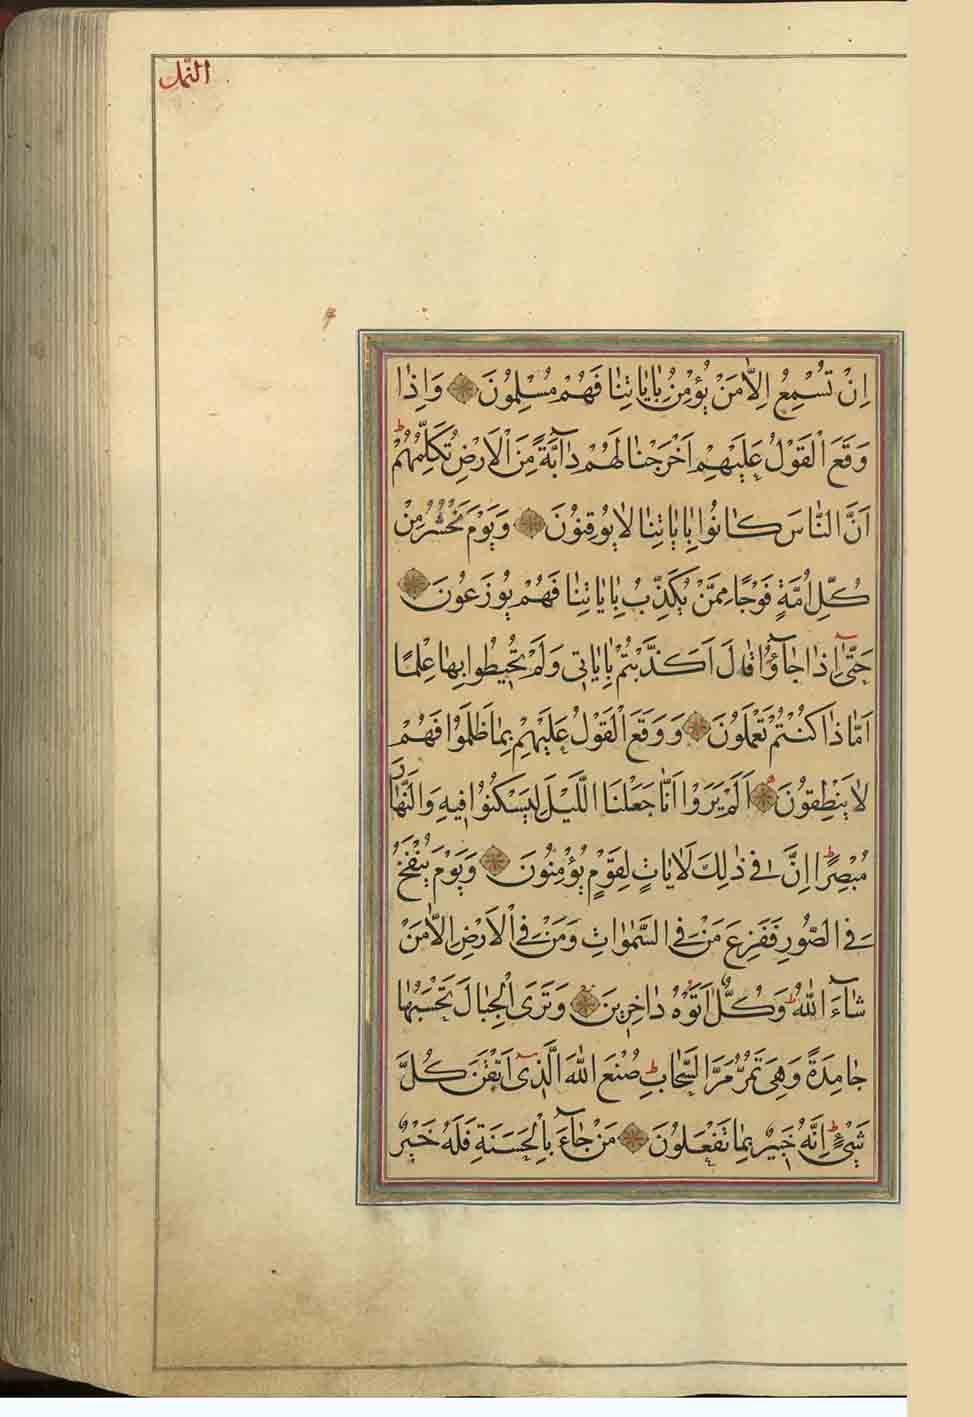 النمل
اِنْ تُسْمِعُ اِلَّا مَنْ يُؤْمِنُ بِاٰيَاتِنَا فَهُمْ مُسْلِمُونَ وَاِذَا
وَقَعَ الْقَوْلُ عَلَيْهِمْ اَخْرَجْنَا لَهُمْ دَآبَّةً مِنَ الْاَرْضِ تُكَلِّمُهُمْ
اَنَّ النَّاسَ كَانُوا بِاٰيَاتِنَا لَا يُوقِنُونَ وَيَوْمَ نَحْشُرُ مِنْ
كُلِّ اُمَّةٍ فَوْجًا مِمَّنْ يُكَذِّبُ بِاٰيَاتِنَا فَهُمْ يُوزَعُونَ
حَتّٰى اِذَا جَآؤُا قَالَ اَكَذَّبْتُمْ بِاٰيَاتِى وَلَمْ تُحِيطُوا بِهَا عِلْمًا
اَمَّا ذَا كُنْتُمْ تَعْمَلُونَ وَوَقَعَ الْقَوْلُ عَلَيْهِمْ بِمَا ظَلَمُوا فَهُمْ
لَا يَنْطِقُونَ اَلَمْ يَرَوْا اَنَّا جَعَلْنَا الَّيْلَ لِيَسْكُنُوا فِيهِ وَالنَّهَارَ
مُبْصِرًا اِنَّ فِى ذٰلِكَ لَاٰيَاتٍ لِقَوْمٍ يُؤْمِنُونَ وَيَوْمَ يُنْفَخُ
فِى الصُّورِ فَفَزِعَ مَنْ فِى السَّمٰوَاتِ وَمَنْ فِى الْاَرْضِ اِلَّا مَنْ
شَآءَ اللّٰهُ وَكُلٌّ اَتَوْهُ دَاخِرِينَ وَتَرَى الْجِبَالَ تَحْسَبُهَا
جَامِدَةً وَهِىَ تَمُرُّ مَرَّ السَّحَابِ صُنْعَ اللّٰهِ الَّذِى اَتْقَنَ كُلَّ
شَىْءٍ اِنَّهُ خَبِيرٌ بِمَا تَفْعَلُونَ مَنْ جَآءَ بِالْحَسَنَةِ فَلَهُ خَيْرٌ